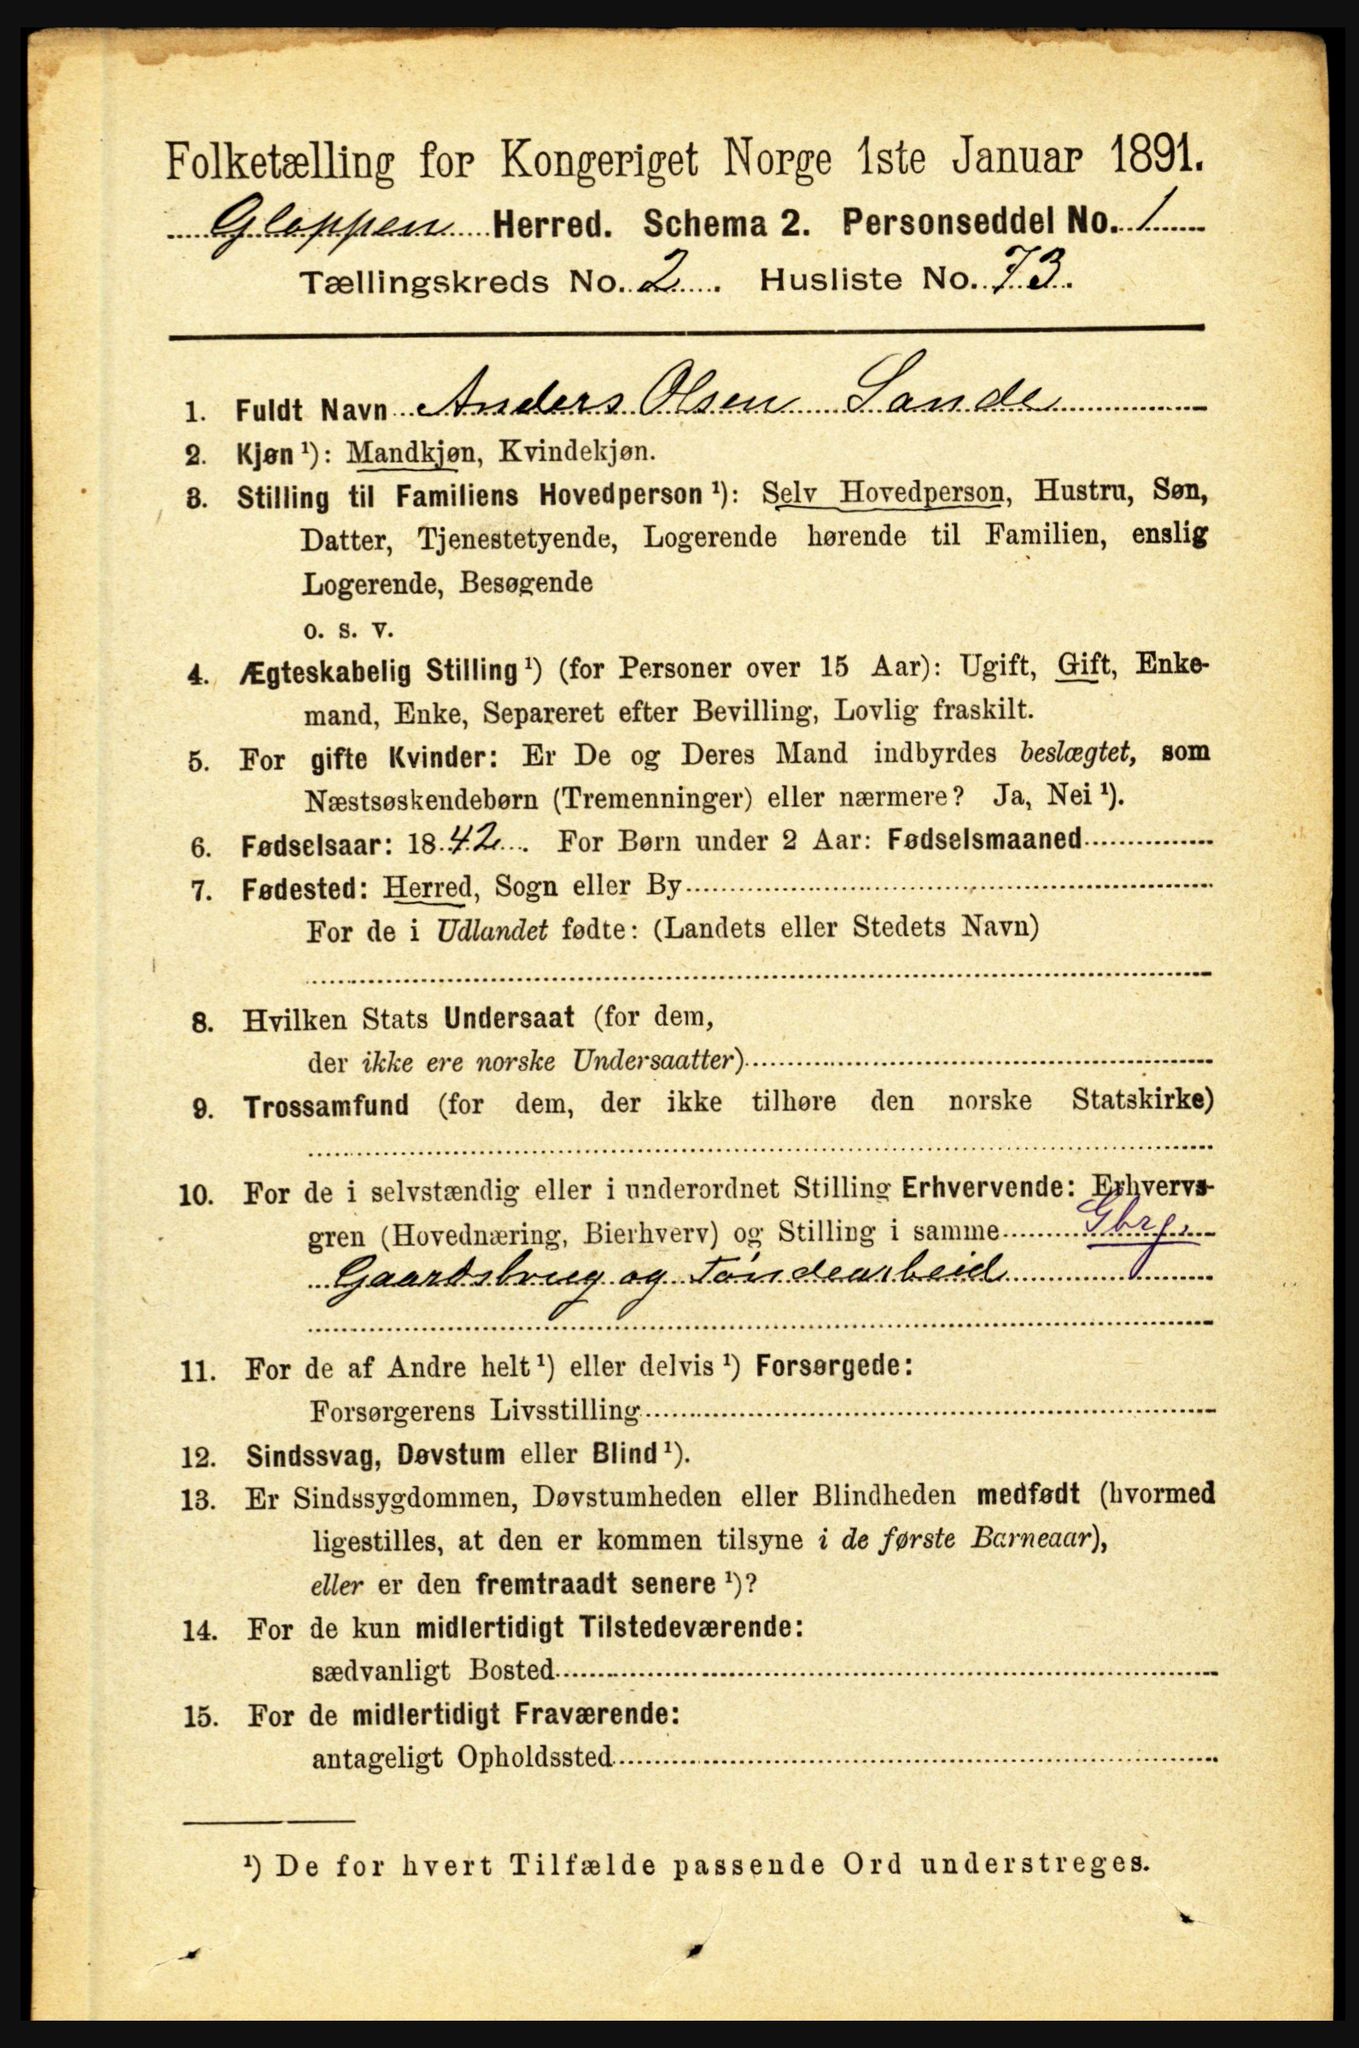 Folketælling for Kongeriget Norge 1ste Januar 1891.
Gloppen Herred. Schema 2. Personseddel No. 1
Tællingskreds No. 2. Husliste No. 73.
1. Fuldt Navn Anders Olsen Sande
2. Kjøn ¹): Mandkjøn, Kvindekjøn.
3. Stilling til Familiens Hovedperson ¹): Selv Hovedperson, Hustru, Søn,
Datter, Tjenestetyende, Logerende hørende til Familien, enslig
Logerende, Besøgende
o. s. v.
4. Ægteskabelig Stilling ¹) (for Personer over 15 Aar): Ugift, Gift, Enke-
mand, Enke, Separeret efter Bevilling, Lovlig fraskilt.
5. For gifte Kvinder: Er De og Deres Mand indbyrdes beslægtet, som
Næstsøskendebørn (Tremenninger) eller nærmere? Ja, Nei ¹).
6. Fødselsaar: 1842. For Børn under 2 Aar: Fødselsmaaned
7. Fødested: Herred, Sogn eller By
For de i Udlandet fødte: (Landets eller Stedets Navn)
8. Hvilken Stats Undersaat (for dem,
der ikke ere norske Undersaatter)
9. Trossamfund (for dem, der ikke tilhøre den norske Statskirke)
10. For de i selvstændig eller i underordnet Stilling Erhvervende: Erhvervs-
gren (Hovednæring, Bierhverv) og Stilling i samme Gbrg.
Gaardsbrug og Tøndearbeid
11. For de af Andre helt ¹) eller delvis ¹) Forsørgede:
Forsørgerens Livsstilling
12. Sindssvag, Døvstum eller Blind ¹).
13. Er Sindssygdommen, Døvstumheden eller Blindheden medfødt (hvormed
ligestilles, at den er kommen tilsyne i de første Barneaar),
eller er den fremtraadt senere ¹)?
14. For de kun midlertidigt Tilstedeværende:
sædvanligt Bosted
15. For de midlertidigt Fraværende:
antageligt Opholdssted
¹) De for hvert Tilfælde passende Ord understreges.